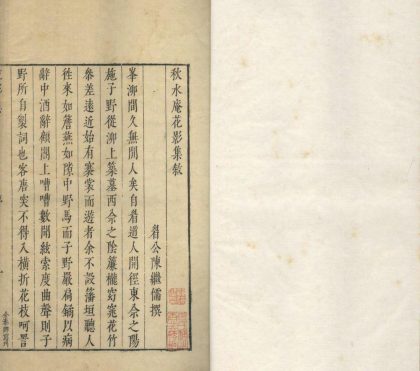 秋水庵花影集敘
眉公陳繼儒撰
峯泖間久無閒人矣自眉道人開徑東佘之陽
施子野從泖上築墓西佘之陰簾櫳窈窕花竹
參差遠近始有褰裳而遊者余不設藩垣聽人
徃來如簷燕如隙中野馬而子野嚴扃鐍以病
辭中酒辭頋閣上嘈嘈數聞絃索度曲聲則子
野所自製詞也客唐突不得入橫折花枝呵詈